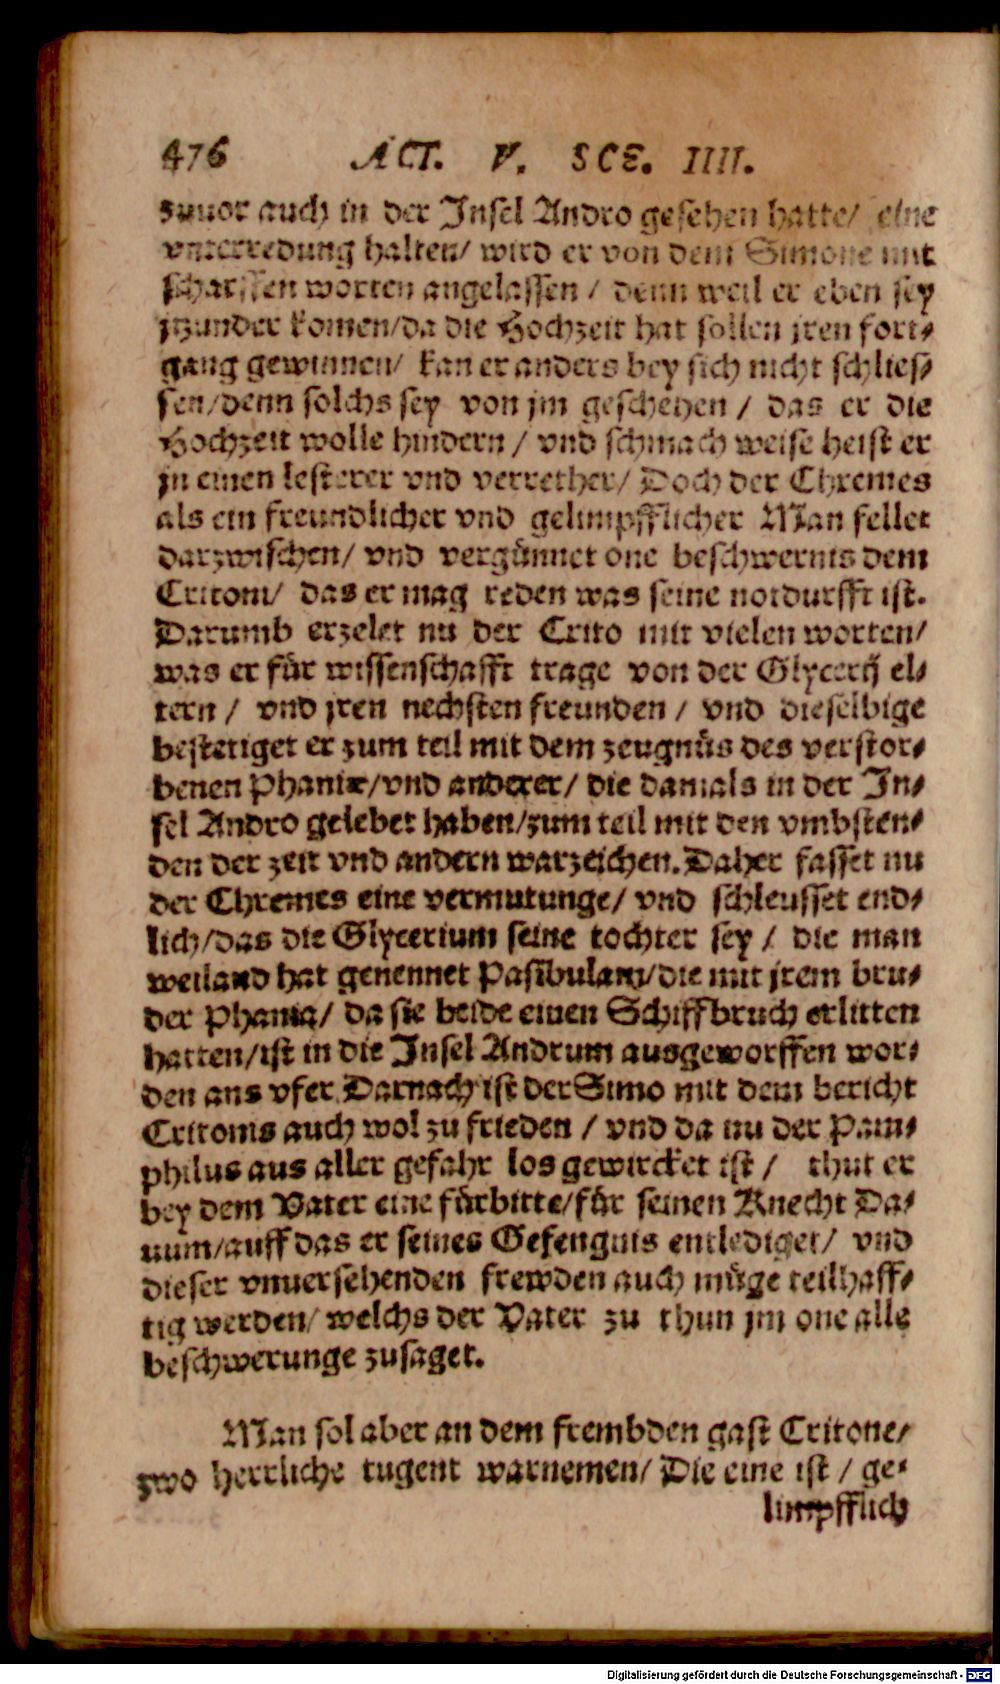 476 ACT. V. SCE. IIII.
zuuor auch in der Insel Andro gesehen hatte/ eine
vnterredung halten/ wird er von dem Simone mit
scharffen worten angelassen / denn weil er eben sey
jtzunder komen/da die Hochzeit hat sollen jren fort⸗
gang gewinnen/ kan er anders bey sich nicht schlies⸗
sen/denn solchs sey von jm geschehen / das er die
Hochzeit wolle hindern / vnd schmach weise heist er
jn einen lesterer vnd verrether/ Doch der Chremes
als ein freundlicher vnd gelimpfflicher Man fellet
darzwischen/ vnd vergünnet one beschwernis dem
Critoni/ das er mag reden was seine notdurfft ist.
Darumb erzelet nu der Crito mit vielen worten/
was er für wissenschafft trage von der Glycerij el⸗
tern / vnd jren nechsten freunden / vnd dieselbige
bestetiget er zum teil mit dem zeugnüs des verstor⸗
benen Phaniæ/vnd anderer/ die damals in der In⸗
sel Andro gelebet haben/zum teil mit den vmbsten⸗
den der zeit vnd andern warzeichen. Daher fasset nu
der Chremes eine vermutunge/ vnd schleusset end⸗
lich/das die Glycerium seine tochter sey / die man
weiland hat genennet Pasibulam/die mit jrem bru⸗
der Phania/ da sie beide einen Schiffbruch erlitten
hatten/ist in die Insel Andrum ausgeworffen wor⸗
den ans vfer. Darnach ist der Simo mit dem bericht
Critonis auch wol zu frieden / vnd da nu der Pam⸗
philus aus aller gefahr los gewircket ist / thut er
bey dem Vater eine fürbitte/für seinen Knecht Da⸗
uum/auff das er seines Gefengnis entlediget/ vnd
dieser vnuersehenden frewden auch müge teilhaff⸗
tig werden/ welchs der Vater zu thun jm one alle
beschwerunge zusaget.
Man sol aber an dem frembden gast Critone/
zwo herrliche tugent warnemen/ Die eine ist / ge⸗
limpfflich
Digitalisierung gefördert durch die Deutsche Forschungsgemeinschaft - DFG